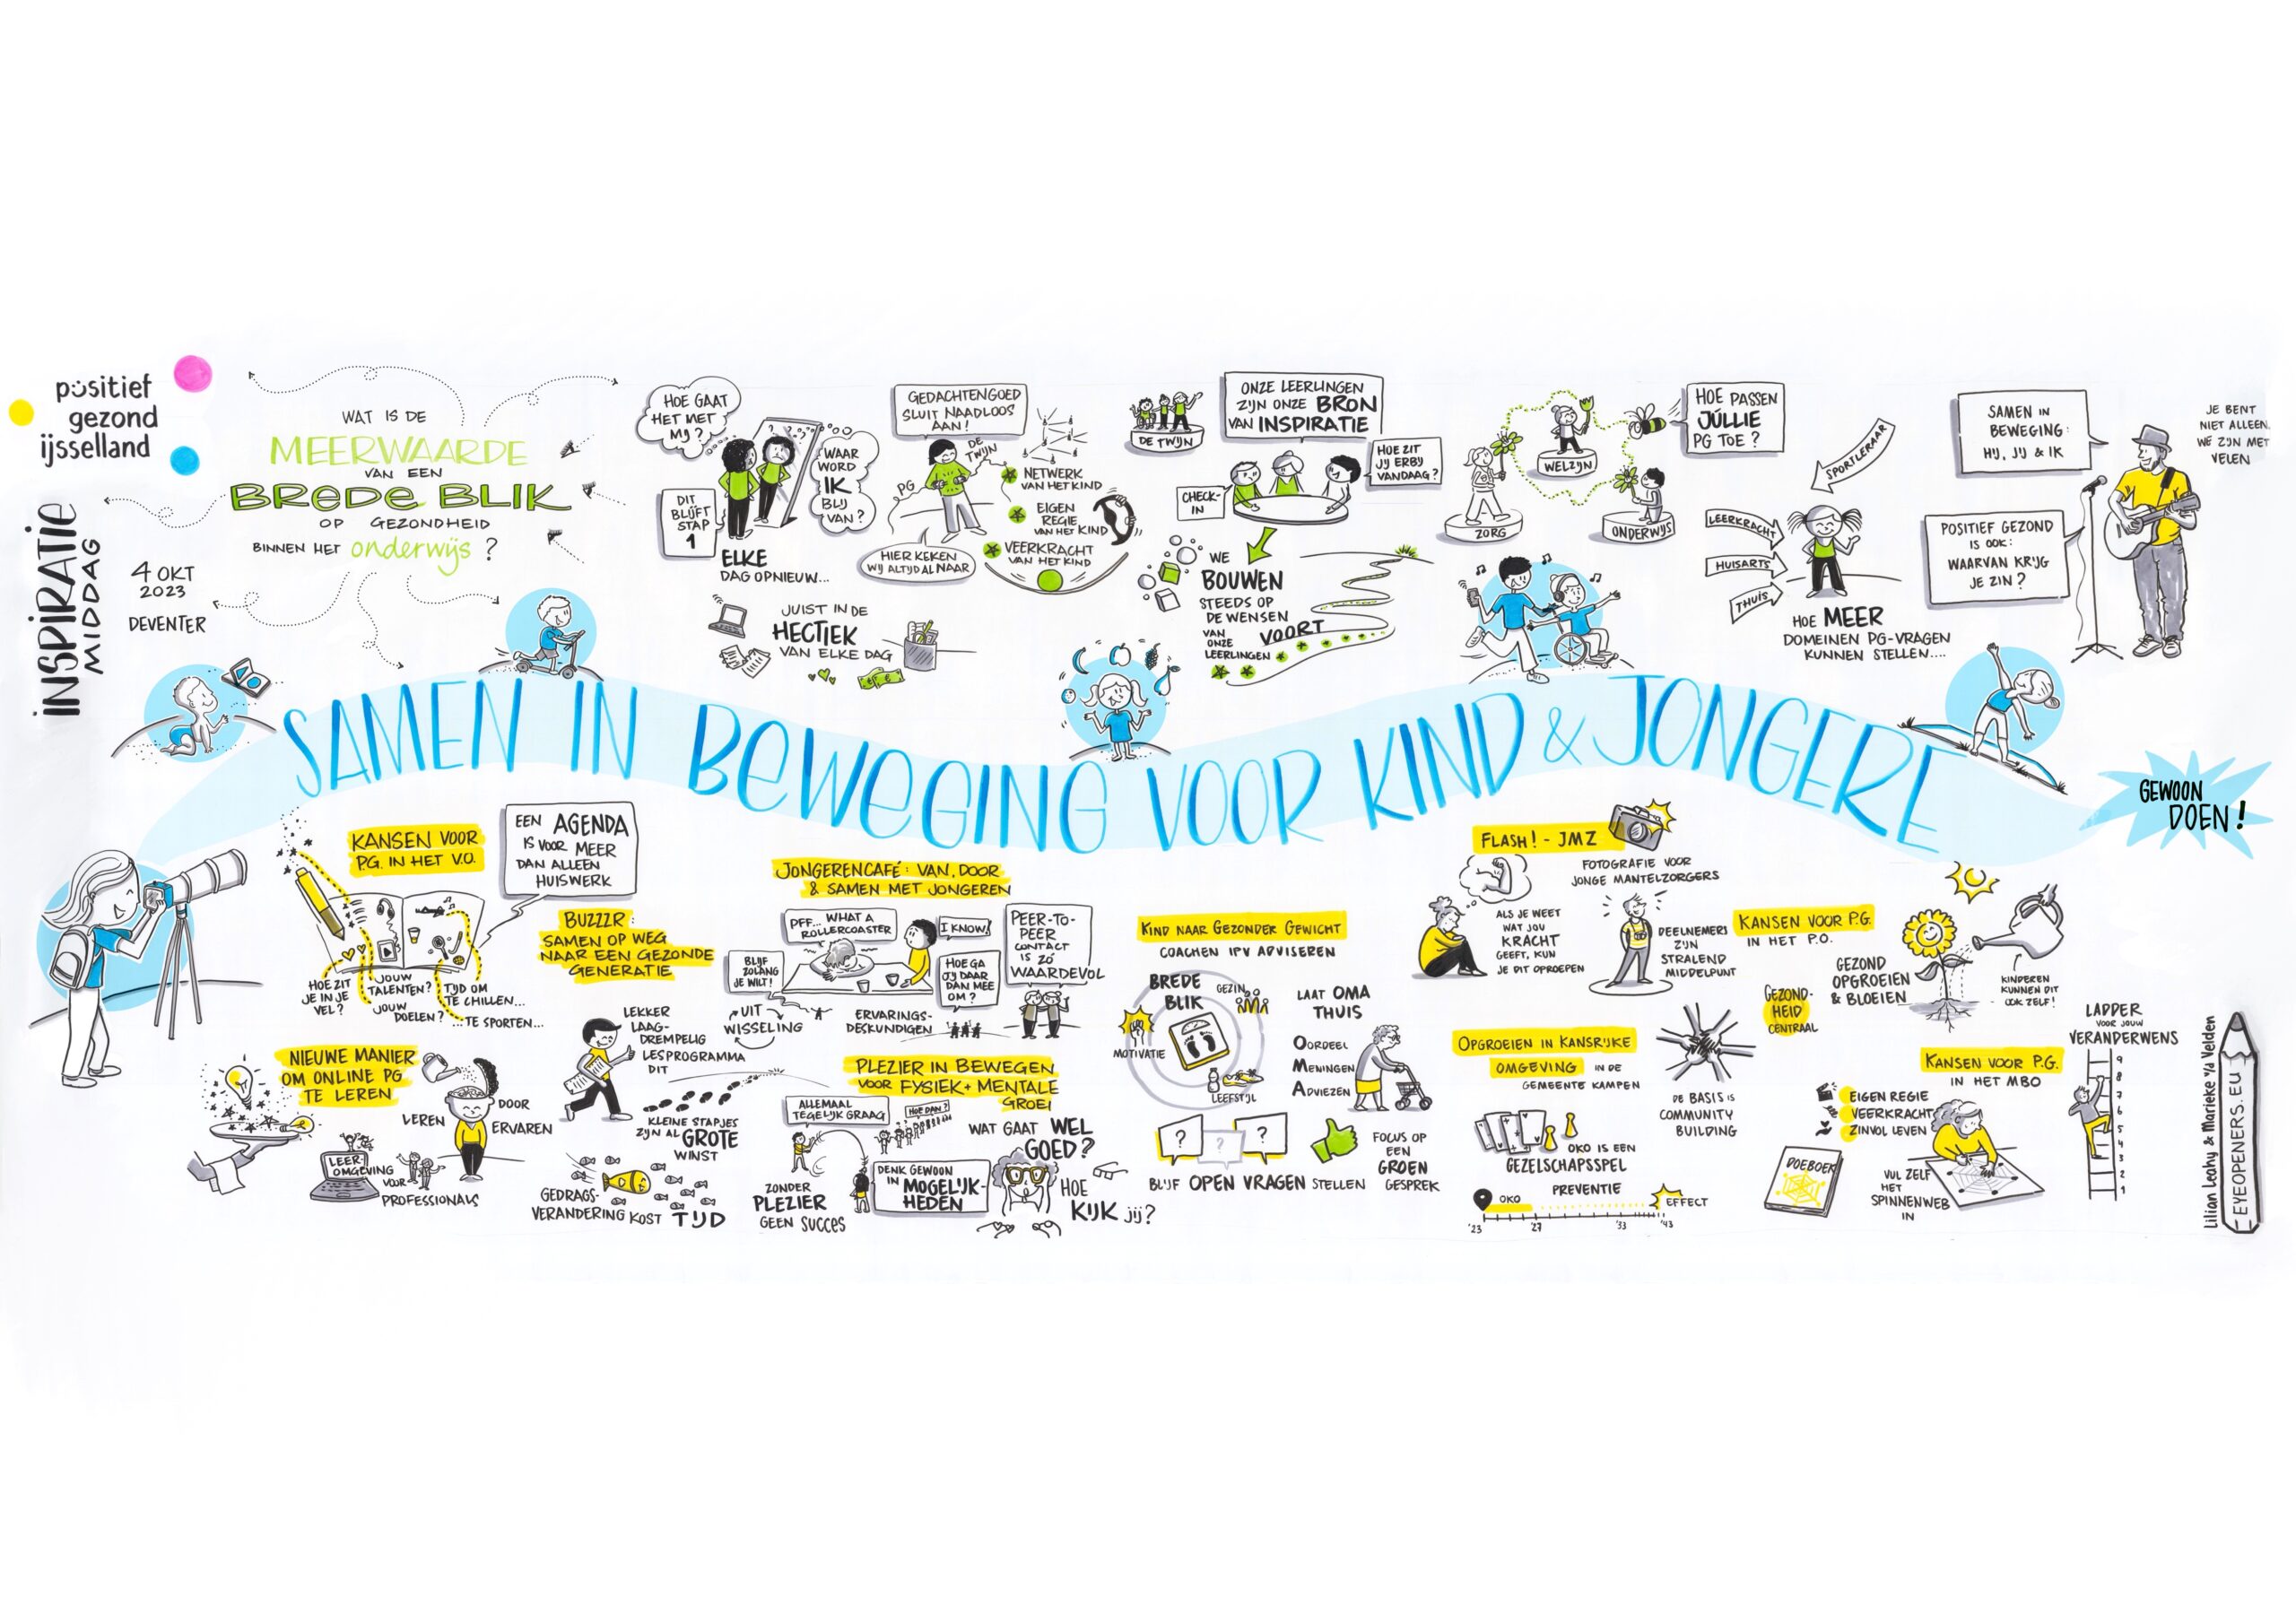 positief
gezond
ijsselland
INSPIRATIE
MIDDAG
4 OKT
2023
DEVENTER
WAT IS DE
MEERWAARDE
VAN EEN
BREDE BLIK
OP GEZONDHEID
BINNEN HET onderwijs?
HOE GAAT
HET MET
MIJ?
DIT
BLIJFT
STAP
1
WAAR
WORD
IK
BLIJ
VAN?
ELKE
DAG OPNIEUW...
JUIST IN DE
HECTIEK
VAN ELKE DAG
GEDACHTENGOED
SLUIT NAADLOOS
AAN!
DE
TWIJN
PG
HIER KEKEN
WIJ ALTIJD AL NAAR
NETWERK
VAN HET KIND
EIGEN
REGIE
VAN HET KIND
VEERKRACHT
VAN HET KIND
DE TWIJN
ONZE LEERLINGEN
ZIJN ONZE BRON
VAN INSPIRATIE
CHECK-
IN
HOE ZIT
JIJ ERBIJ
VANDAAG?
WE
BOUWEN
STEEDS OP
DE WENSEN
VAN
ONZE
LEERLINGEN
VOORT
ZORG
WELZIJN
ONDERWIJS
HOE PASSEN
JÚLLIE
PG TOE?
SPORTLERAAR
LEERKRACHT
HUISARTS
THUIS
HOE MEER
DOMEINEN PG-VRAGEN
KUNNEN STELLEN....
SAMEN IN
BEWEGING:
HIJ, JIJ & IK
POSITIEF GEZOND
IS OOK:
WAARVAN KRIJG
JE ZIN?
JE BENT
NIET ALLEEN.
WE ZIJN MET
VELEN
SAMEN IN BEWEGING VOOR KIND & JONGERE
GEWOON
DOEN!
KANSEN VOOR
P.G. IN HET V.O.
EEN AGENDA
IS VOOR MEER
DAN ALLEEN
HUISWERK
HOE ZIT
JE IN JE
VEL?
JOUW
TALENTEN?
JOUW
DOELEN?
TIJD OM
TE CHILLEN...
...TE SPORTEN...
NIEUWE MANIER
OM ONLINE PG
TE LEREN
LEREN
DOOR
ERVAREN
LEER-
OMGEVING
VOOR
PROFESSIONALS
BUZZZR:
SAMEN OP WEG
NAAR EEN GEZONDE
GENERATIE
LEKKER
LAAG-
DREMPELIG
LESPROGRAMMA
DIT
KLEINE STAPJES
ZIJN AL GROTE
WINST
GEDRAGS-
VERANDERING KOST TIJD
JONGERENCAFÉ: VAN, DOOR
& SAMEN MET JONGEREN
PFF... WHAT A
ROLLERCOASTER
I KNOW!
BLIJF
ZOLANG
JE WILT!
HOE GA
JIJ DAAR
DAN MEE
OM?
PEER-TO-
PEER
CONTACT
IS ZÓ
WAARDEVOL
UIT
WISSELING
ERVARINGS-
DESKUNDIGEN
PLEZIER IN BEWEGEN
VOOR FYSIEK + MENTALE
GROEI
ALLEMAAL
TEGELIJK GRAAG
HOE DAN?
ZONDER
PLEZIER
GEEN SUCCES
DENK GEWOON
IN MOGELIJK-
HEDEN
WAT GAAT WEL
GOED?
HOE
KIJK jij?
KIND NAAR GEZONDER GEWICHT
COACHEN IPV ADVISEREN
BREDE
BLIK
GEZIN
MOTIVATIE
LEEFSTIJL
LAAT OMA
THUIS
OORDEEL
MENINGEN
ADVIEZEN
?
?
?
BLIJF OPEN VRAGEN STELLEN
FOCUS OP
EEN
GROEN
GESPREK
FLASH! - JMZ
FOTOGRAFIE VOOR
JONGE MANTELZORGERS
ALS JE WEET
WAT JOU
KRACHT
GEEFT, KUN
JE DIT OPROEPEN
DEELNEMERS
ZIJN
STRALEND
MIDDELPUNT
OPGROEIEN IN KANSRIJKE
OMGEVING IN DE
GEMEENTE KAMPEN
DE BASIS IS
COMMUNITY
BUILDING
OKO IS EEN
GEZELSCHAPSSPEL
PREVENTIE
OKO
EFFECT
'23
'27
'33
'43
KANSEN VOOR P.G.
IN HET P.O.
GEZOND-
HEID
CENTRAAL
GEZOND
OPGROEIEN
& BLOEIEN
KINDEREN
KUNNEN DIT
OOK ZELF!
KANSEN VOOR P.G.
IN HET MBO
EIGEN REGIE
VEERKRACHT
ZINVOL LEVEN
DOEBOEK
VUL ZELF
HET
SPINNENWEB
IN
LADDER
VOOR JOUW
VERANDERWENS
9
8
7
6
5
4
3
2
1
Lilian Leahy & Marieke v/d Velden
EYEOPENERS.EU